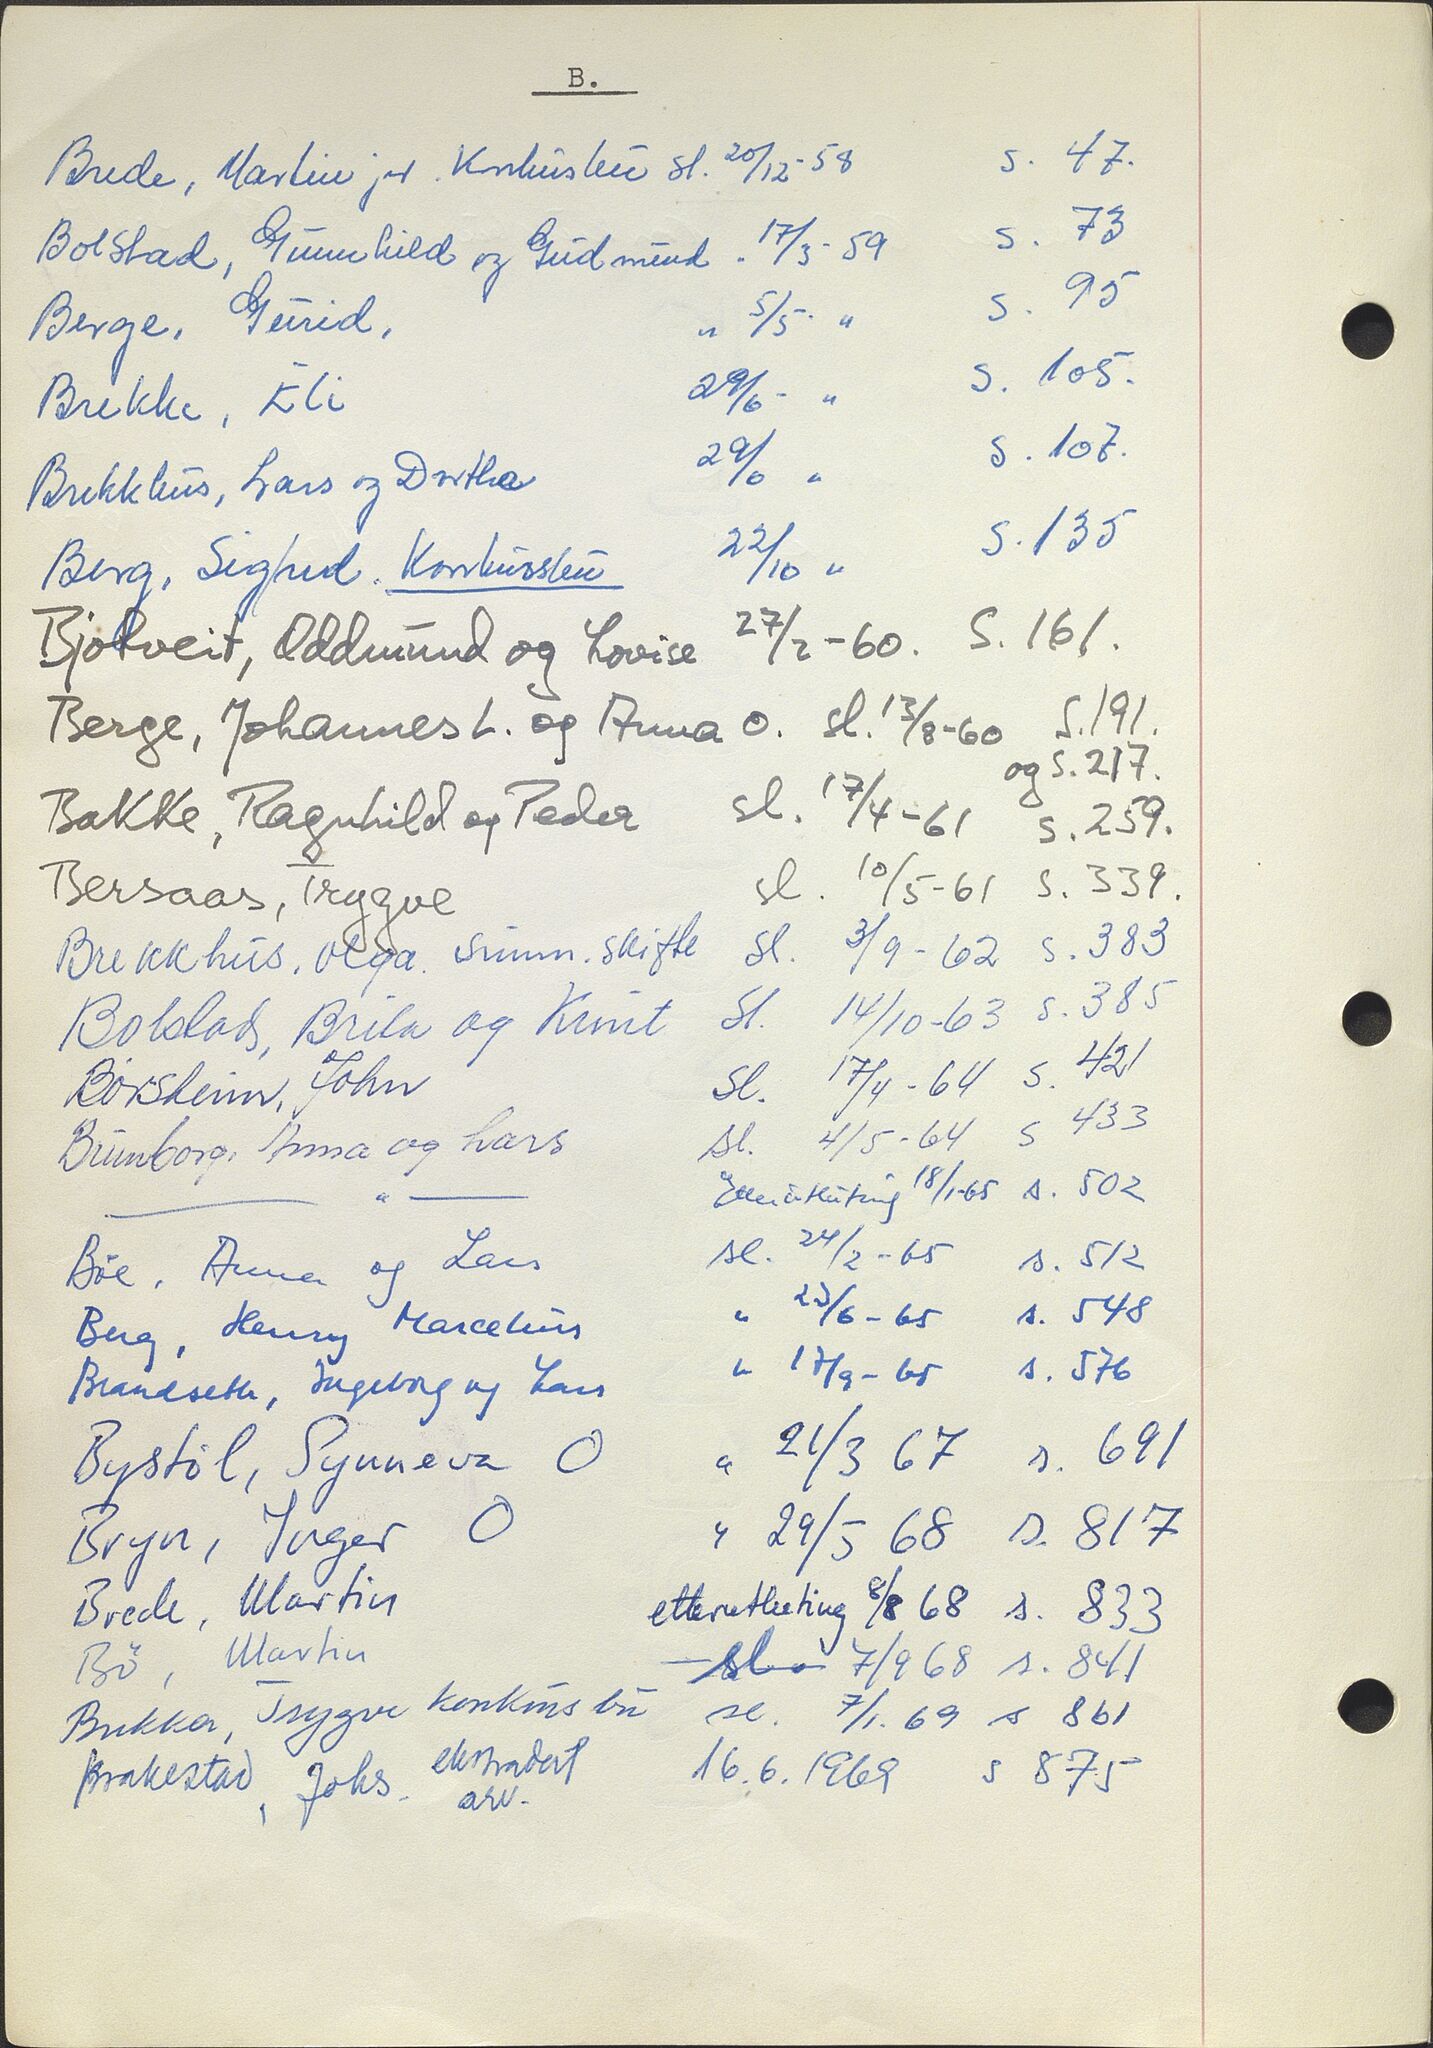 B.
Brede, Martin jr. Konkursbu sl. 20/12-58 s. 47.
Bolstad, Gunnhild og Gudmund. 17/3-59 s. 73
Berge, Gurid, " 5/5- " s. 95
Brekke, Eli 29/6- " s. 105.
Brekkhus, Lars og Dortha 29/6 " s. 107.
Berg, Sigfred. Konkursbu 22/10 " s. 135
Bjotveit, Oddmund og Lovise 27/2-60. S. 161.
Berge, Johannes L. og Anna O. sl. 13/8-60 S. 191.
og s. 217.
Bakke, Ragnhild og Peder sl. 17/4-61 s. 259.
Bersaas, Trygve sl. 10/5-61 s. 339.
Brekkhus, Olga. summ. skifte sl. 3/9-62 s. 383
Bolstad, Brita og Knut Sl. 14/10-63 s. 385
Börsheim, John Sl. 17/4-64 s. 421
Bumborg, Anna og Lars sl. 4/5-64 s 433
— " — Etterutlutning 18/1-65 s. 502
Böe, Anna og Lars sl. 24/2-65 s. 512
Berg, Henry Marcelius " 23/6-65 s. 548
Brandseth, Ingeborg og Lars " 17/9-65 s. 576
Bystöl, Synneva O " 21/3 67 s. 691
Bryn, Inger O " 29/5 68 s. 817
Brede, Martin etterutluting 8/8 68 s. 833
Bö, Martin sl. 7/9 68 s. 841
Brekke, Trygve konkursbu sl. 7/1. 69 s 861
Brakestad, Johs. ekstradert 16.6.1969 s 875
arv.